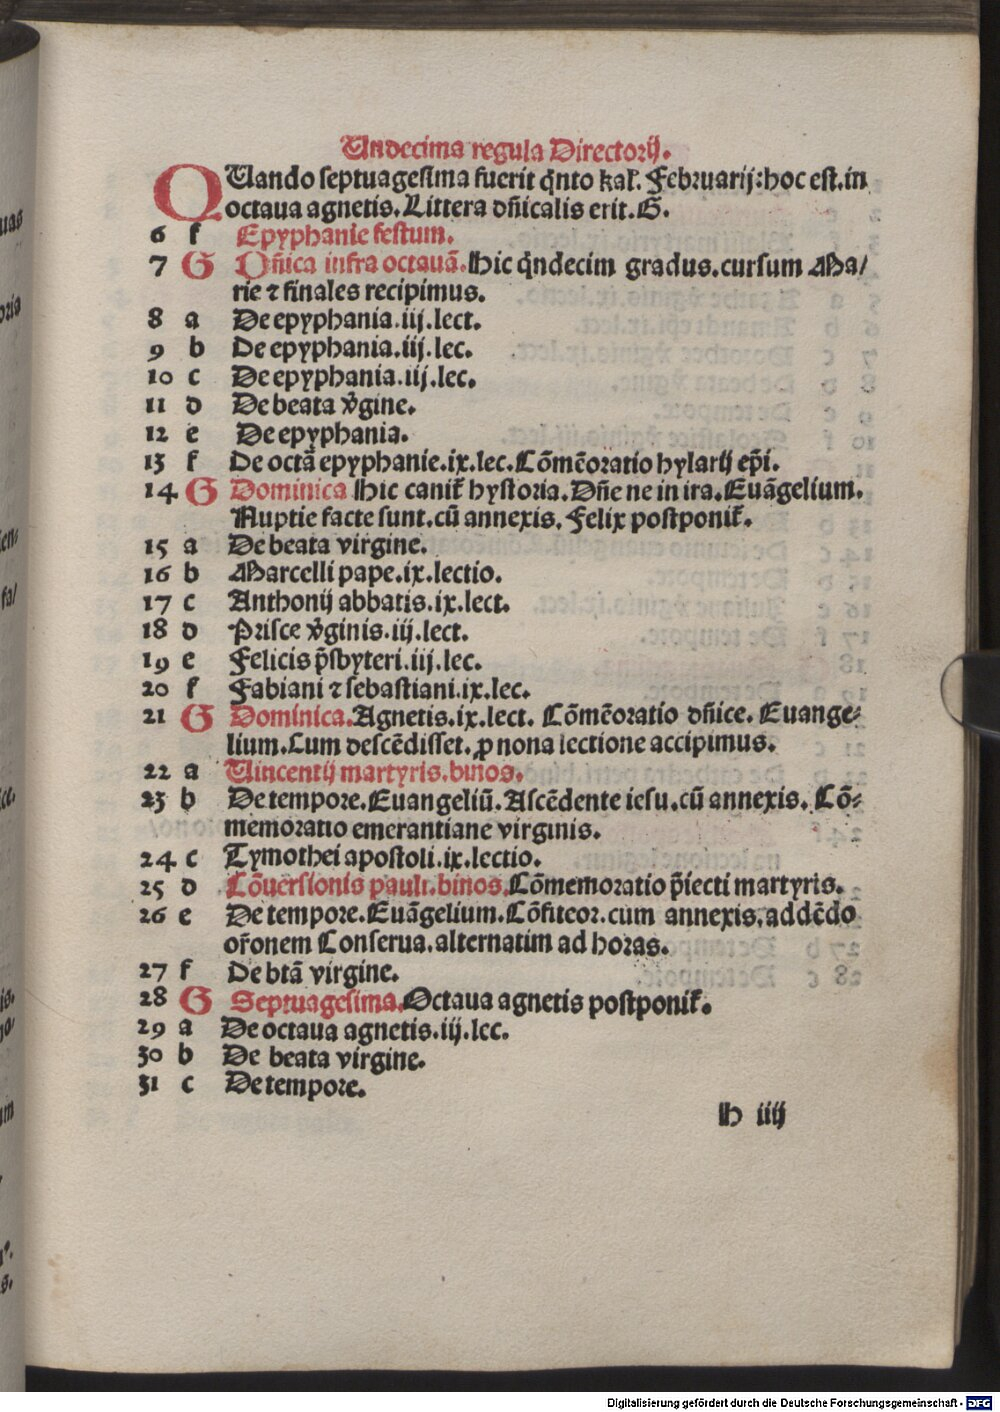 Undecima regula Directorij.
QUando septuagesima fuerit q̄nto kal'. Februarij: hoc est. in
octaua agnetis. Littera dn̄icalis erit. G.
6 f Epyphanie festum.
7 G Dn̄ica infra octauā. Hic q̄ndecim gradus. cursum Ma/
rie ⁊ finales recipimus.
8 a De epyphania. iij. lect.
9 b De epyphania. iij. lec.
10 c De epyphania. iij. lec.
11 d De beata v̄gine.
12 e De epyphania.
13 f De octā epyphanie. ix. lec. Cōmēoratio hylarij ep̄i.
14 G Dominica Hic canit̄ hystoria. Dn̄e ne in ira. Euāgelium.
Nuptie facte sunt. cū annexis. Felix postponit̄.
15 a De beata virgine.
16 b Marcelli pape. ix. lectio.
17 c Anthonij abbatis. ix. lect.
18 d Prisce v̄ginis. iij. lect.
19 e Felicis p̄sbyteri. iij. lec.
20 f Fabiani ⁊ sebastiani. ix. lec.
21 G Dominica. Agnetis. ix. lect. Cōmēoratio dn̄ice. Euange-
lium. Cum descēdisset. ꝓ nona lectione accipimus.
22 a Uincentij martyris. binos.
23 b De tempore. Euangeliū. Ascēdente iesu. cū annexis. Cō-
memoratio emerantiane virginis.
24 c Tymothei apostoli. ix. lectio.
25 d Cōuersionis pauli. binos. Cōmemoratio p̄iecti martyris.
26 e De tempore. Euāgelium. Cōfiteor. cum annexis. addēdo
or̄onem Conserua. alternatim ad horas.
27 f De btā virgine.
28 G Septuagesima. Octaua agnetis postponit̄.
29 a De octaua agnetis. iij. lec.
30 b De beata virgine.
31 c De tempore.
h iiij
Digitalisierung gefördert durch die Deutsche Forschungsgemeinschaft - DFG